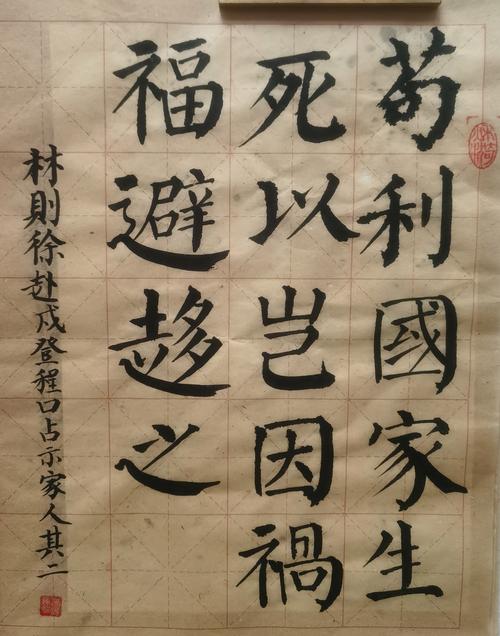 苟利國家生
死以岂因禍
福避趍之
林則徐赴戍登程口占示家人其二